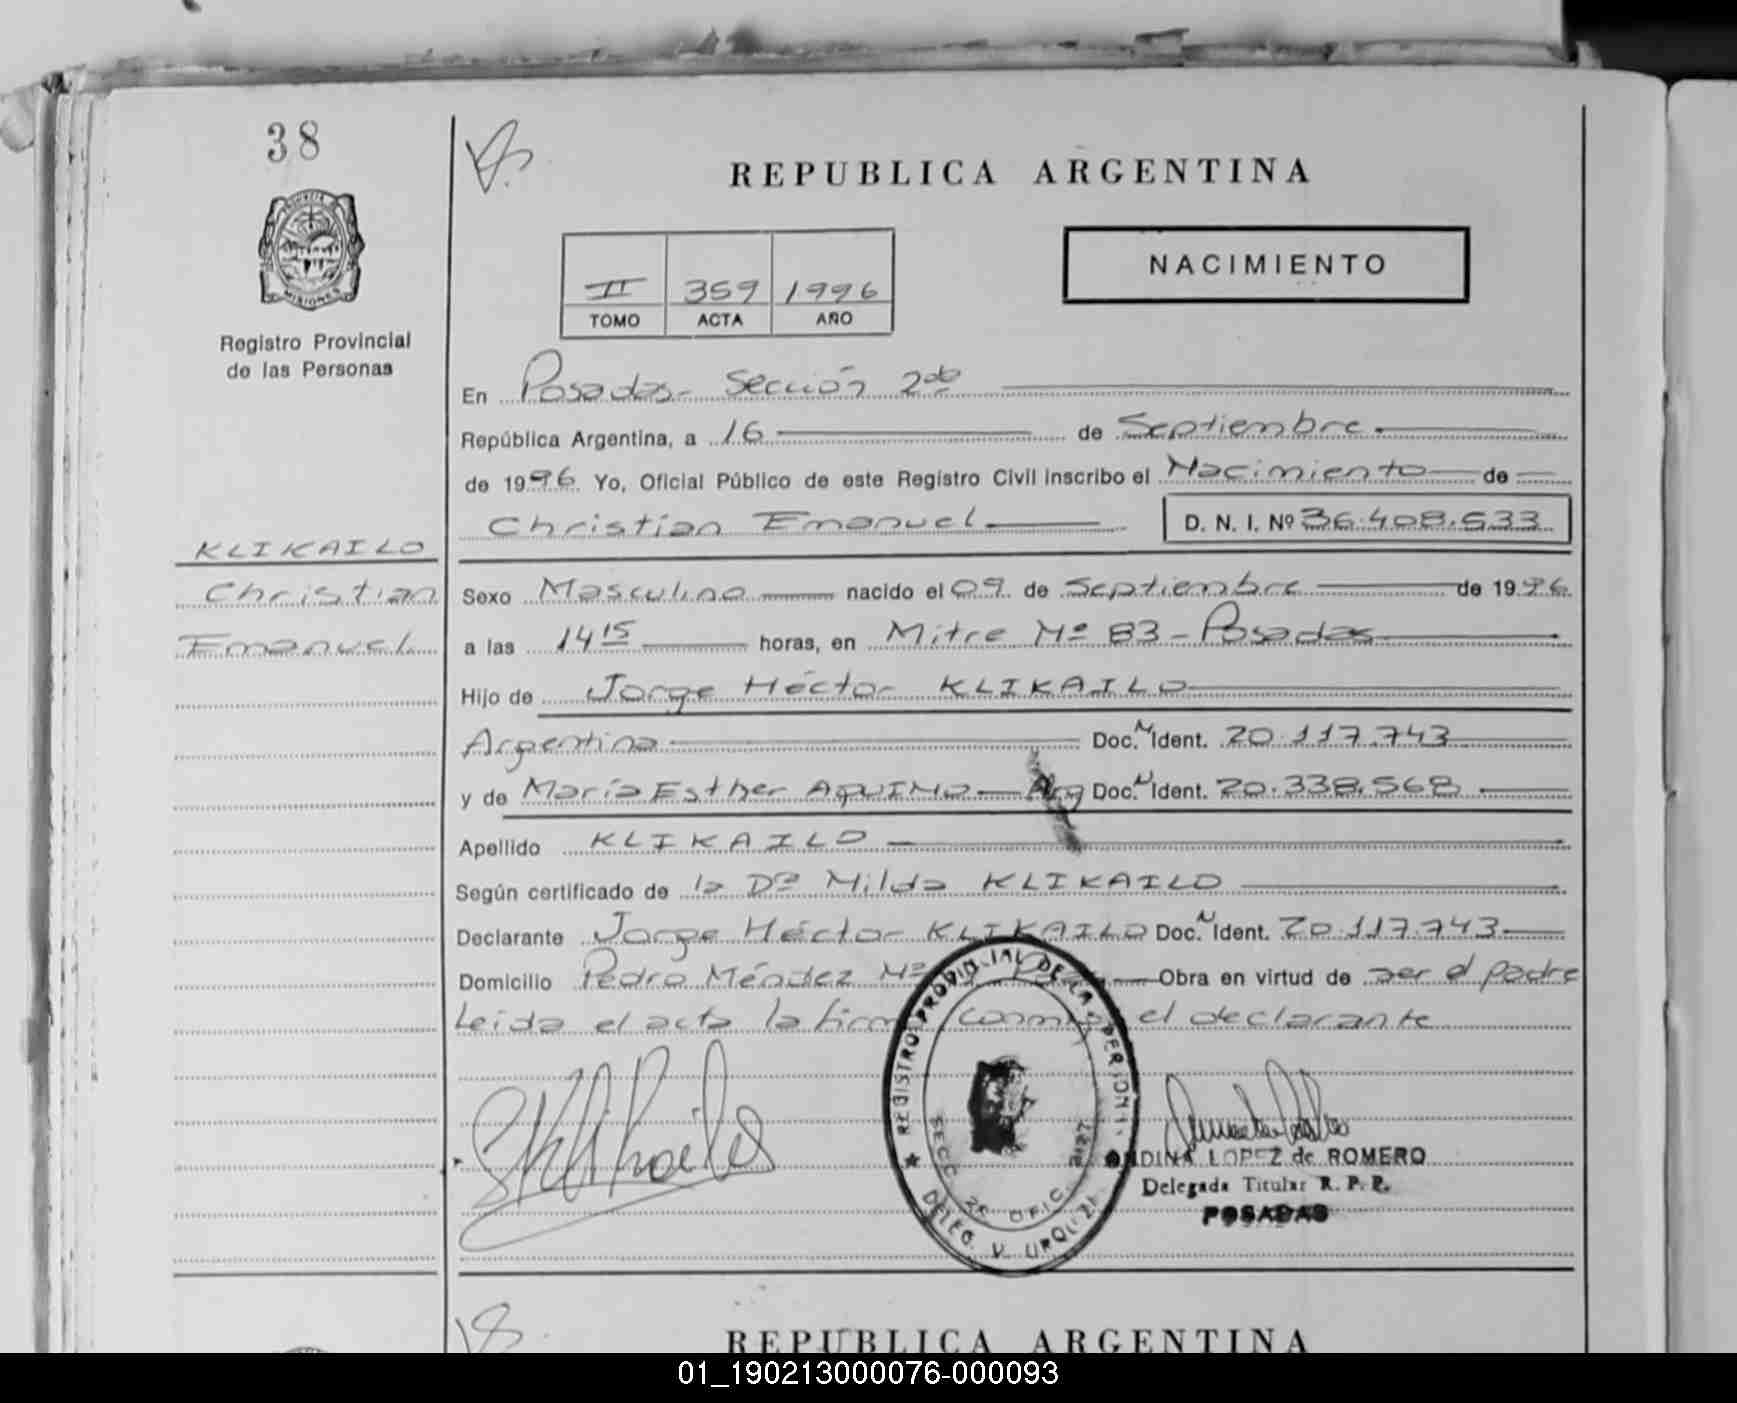 38
REPUBLICA ARGENTINA
PROVINCIA
MISIONES
Registro Provincial
de las Personas
NACIMIENTO
II 359 1996
TOMO ACTA AÑO
En Posadas - Sección 2da
República Argentina, a 16 de Septiembre
de 1996 Yo, Oficial Público de este Registro Civil inscribo el Nacimiento de
Christian Emanuel D. N. I. Nº 36.408.533
KLIKAILO
Christian
Emanuel
Sexo Masculino nacido el 09 de Septiembre de 1996
a las 14 15 horas, en Mitre Nº 83 - Posadas
Hijo de Jorge Héctor KLIKAILO
Argentina Doc. N Ident. 20.117.743
y de María Esther AQUINO - Arg Doc. N Ident. 20.338.568
Apellido KLIKAILO
Según certificado de la Dra Nilda KLIKAILO
Declarante Jorge Héctor KLIKAILO Doc. N Ident. 20.117.743
Domicilio Pedro Méndez Nº Obra en virtud de ser el padre
Leida el acta la firma conmigo el declarante
REGISTRO PROVINCIAL DE LA PERSON
SECC. 2ª OFIC.
DELEG. V. URQUIZA
LOPEZ de ROMERO
Delegada Titular R. P. P.
POSADAS
REPUBLICA ARGENTINA
01_190213000076-000093